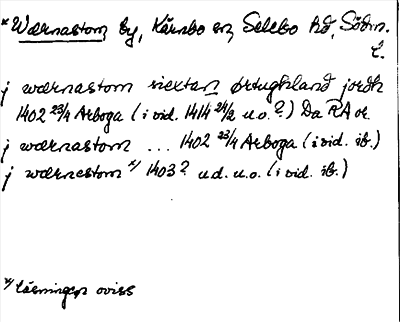 * Wærnastom by, Kärnbo sn, Selebo hd, Södm.
l.
j wærnastom siextan ørtughland jordh
1402 23/4 Arboga (i vid. 1414 24/2 u.o.?) Da RA or
j wærnastom ... 1402 23/4 Arboga (i vid. ib.)
j wærnestom x/ 1403? u.d. u.o. (i vid. ib.)
x/ läsningen oviss